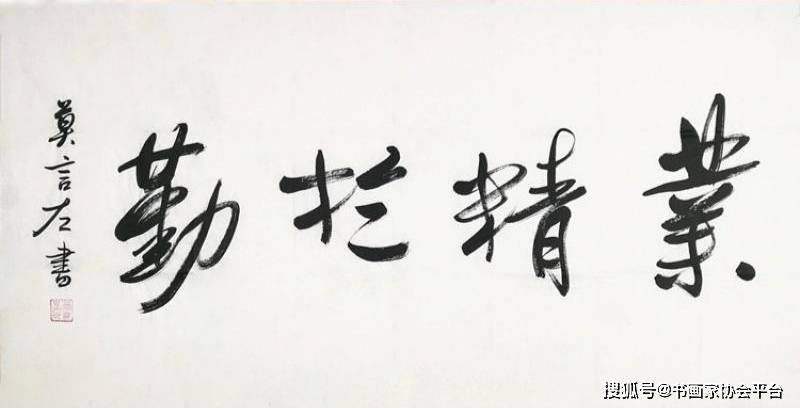 業精於勤
莫言左書
搜狐号@书画家协会平台